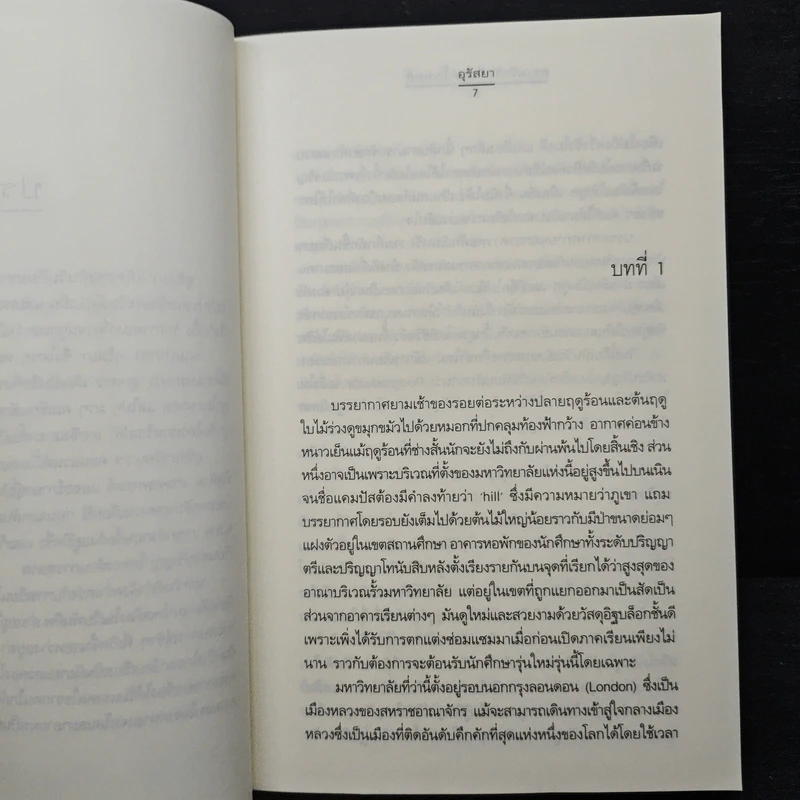 อุรัสยา
7
บทที่ 1
บรรยากาศยามเช้าของรอยต่อระหว่างปลายฤดูร้อนและต้นฤดู
ใบไม้ร่วงดูขมุกขมัวไปด้วยหมอกที่ปกคลุมท้องฟ้ากว้าง อากาศค่อนข้าง
หนาวเย็นแม้ฤดูร้อนที่ช่างสั้นนักจะยังไม่ถึงกับผ่านพ้นไปโดยสิ้นเชิง ส่วน
หนึ่งอาจเป็นเพราะบริเวณที่ตั้งของมหาวิทยาลัยแห่งนี้อยู่สูงขึ้นไปบนเนิน
จนชื่อแคมปัสต้องมีคำลงท้ายว่า ‘hill’ ซึ่งมีความหมายว่าภูเขา แถม
บรรยากาศโดยรอบยังเต็มไปด้วยต้นไม้ใหญ่น้อยราวกับมีป่าขนาดย่อมๆ
แฝงตัวอยู่ในเขตสถานศึกษา อาคารหอพักของนักศึกษาทั้งระดับปริญญา
ตรีและปริญญาโทนับสิบหลังตั้งเรียงรายกันบนจุดที่เรียกได้ว่าสูงสุดของ
อาณาบริเวณรั้วมหาวิทยาลัย แต่อยู่ในเขตที่ถูกแยกออกมาเป็นสัดเป็น
ส่วนจากอาคารเรียนต่างๆ มันดูใหม่และสวยงามด้วยวัสดุอิฐบล็อกชั้นดี
เพราะเพิ่งได้รับการตกแต่งซ่อมแซมมาเมื่อก่อนเปิดภาคเรียนเพียงไม่
นาน ราวกับต้องการจะต้อนรับนักศึกษารุ่นใหม่รุ่นนี้โดยเฉพาะ
มหาวิทยาลัยที่ว่านี้ตั้งอยู่รอบนอกกรุงลอนดอน (London) ซึ่งเป็น
เมืองหลวงของสหราชอาณาจักร แม้จะสามารถเดินทางเข้าสู่ใจกลางเมือง
หลวงซึ่งเป็นเมืองที่ติดอันดับคึกคักที่สุดแห่งหนึ่งของโลกได้โดยใช้เวลา